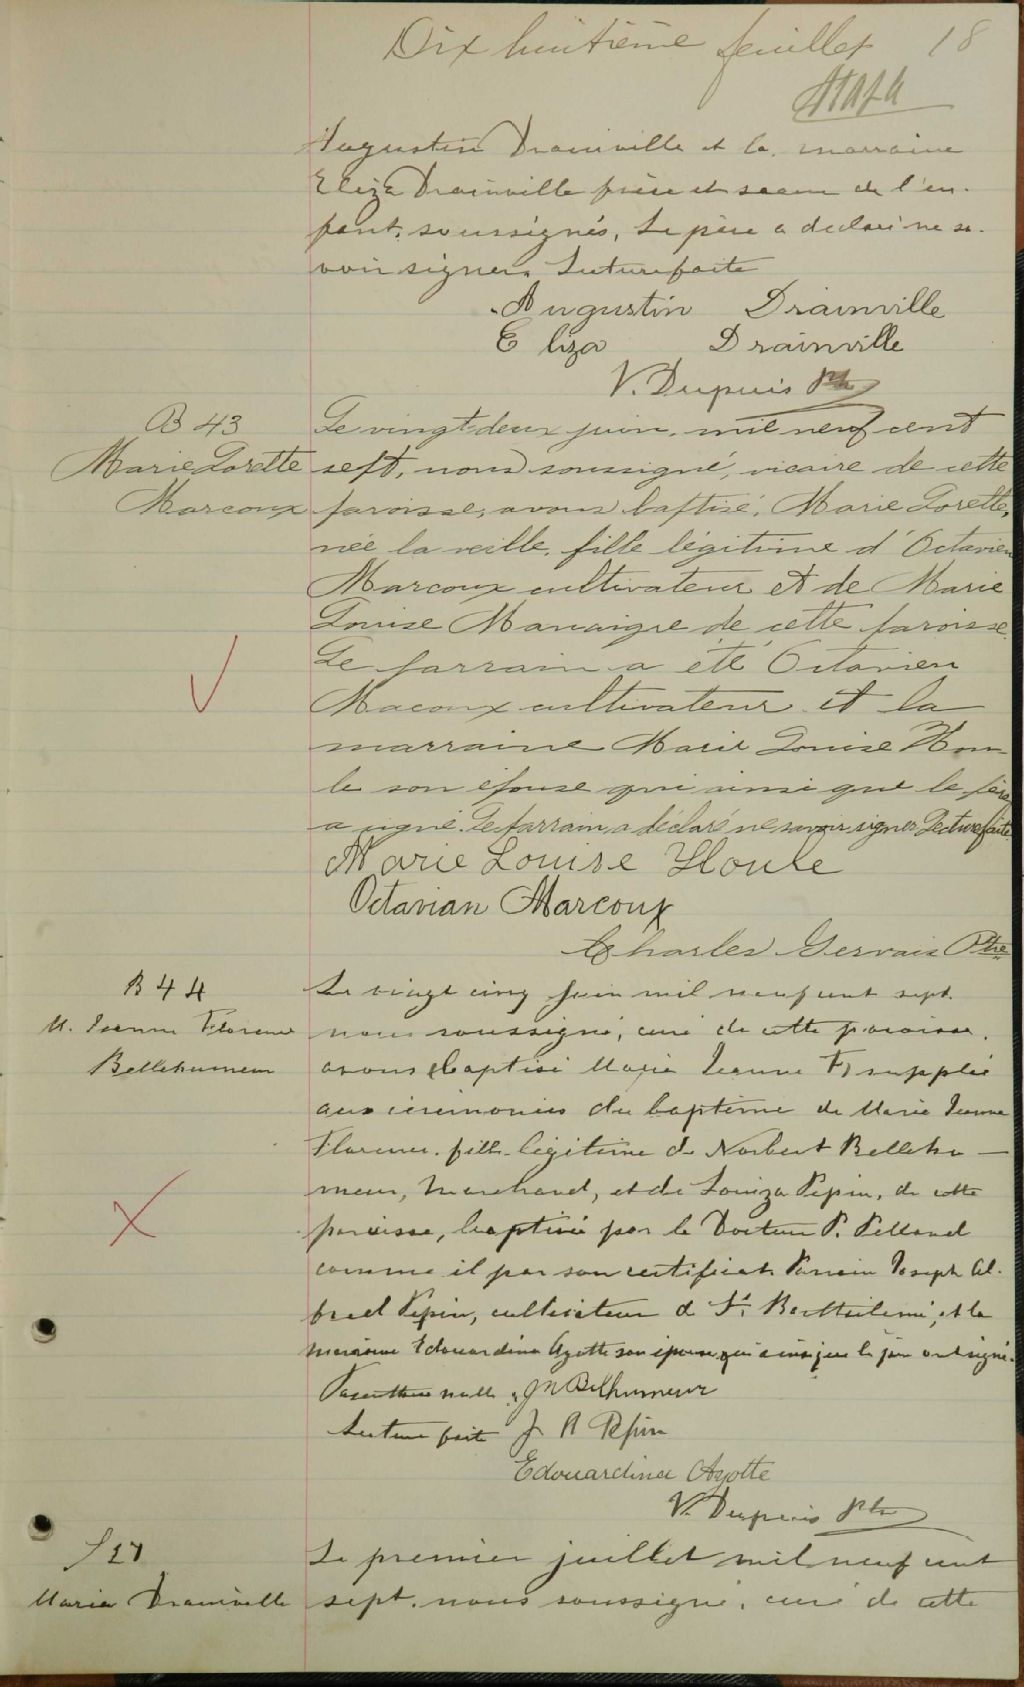 Dix huitième feuillet 18
Augustin Drainville et la marraine
Eliza Drainville frère et soeur de l'en-
fant, soussignés, Le père a déclaré ne sa-
voir signer. Lecture faite
Augustin Drainville
Eliza Drainville
V. Dupuis Ptre
B 43
Marie Lorette
Marcoux
Le vingt-deux juin, mil neuf cent
sept, nous soussigné, vicaire de cette
paroisse, avons baptisé, Marie Lorette,
née la veille, fille légitime d'Octavien
Marcoux cultivateur et de Marie
Louise de cette paroisse.
Le parrain a été Octavien
Macoux cultivateur et la
marraine Marie Louise Hou-
le son épouse qui ainsi que le père
a signé. Le parrain a déclaré ne savoir signer Lecture faite.
Marie Louise Houle
Octavian Marcoux
Charles Gervais Ptre
B 44
M. Jeanne Florence
Bellehumeur
Le vingt cinq juin mil neuf cent sept.
nous soussigné, curé de cette paroisse,
avons (baptisé Marie Jeanne F) supplée
aux cérémonies du baptême de Marie Jeanne
Florence, fille légitime de Norbert Bellehu-
meur, Marchand, et de Louiza Pepin, de cette
paroisse, baptisée par le Docteur P. Pelland
comme il par son certificat. Parrain Joseph Al-
fred Pepin, cultivateur de St. Barthélemi, et la
marraine Edouardina Ayotte son épouse qui ainsi que le père ont signé.
Parenthèse nulle. JN Belhumeur
Lecture faite J A Pepin
Edouardina Ayotte
V. Dupuis Ptre
S 27
Maria Drainville
Le premier juillet mil neuf cent
sept. nous soussigné, curé de cette